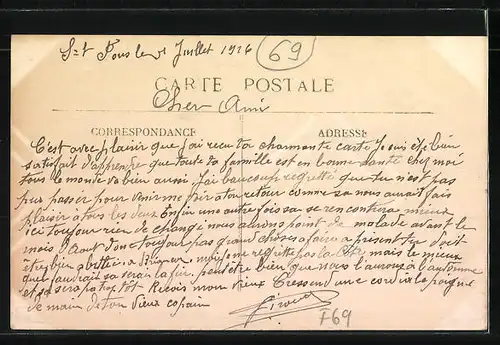 St Fons le 1 Juillet 1926
69
CARTE POSTALE
Cher Ami
CORRESPONDANCE
ADRESSE
C'est avec plaisir que j'ai recu ta charmante carte Je suis bien
satisfait d'apprendre que toute ta famille est en bonne santé chez moi
tous le monde va bien aussi. J'ai beaucoup regretté que tu n'est pas
pu passer pour venir me voir a ton retour comme sa nous aurait fais
plaisir a tous les deux Enfin une autre fois sa se rencontrera mieux
ici toujour rien de changé nous alons point de malade avant le
mois d'Aout donc toujour pas grand choses a faire a present tu doit
être bien a mais je me regrette pas la mais le mieux
quel faudrait sa sera la fin peut être bien que nous l'aurons a l'automne
et sa sera pas trop tôt Recois mon vieux une cordiale poigne
de main de ton vieux copain
F69